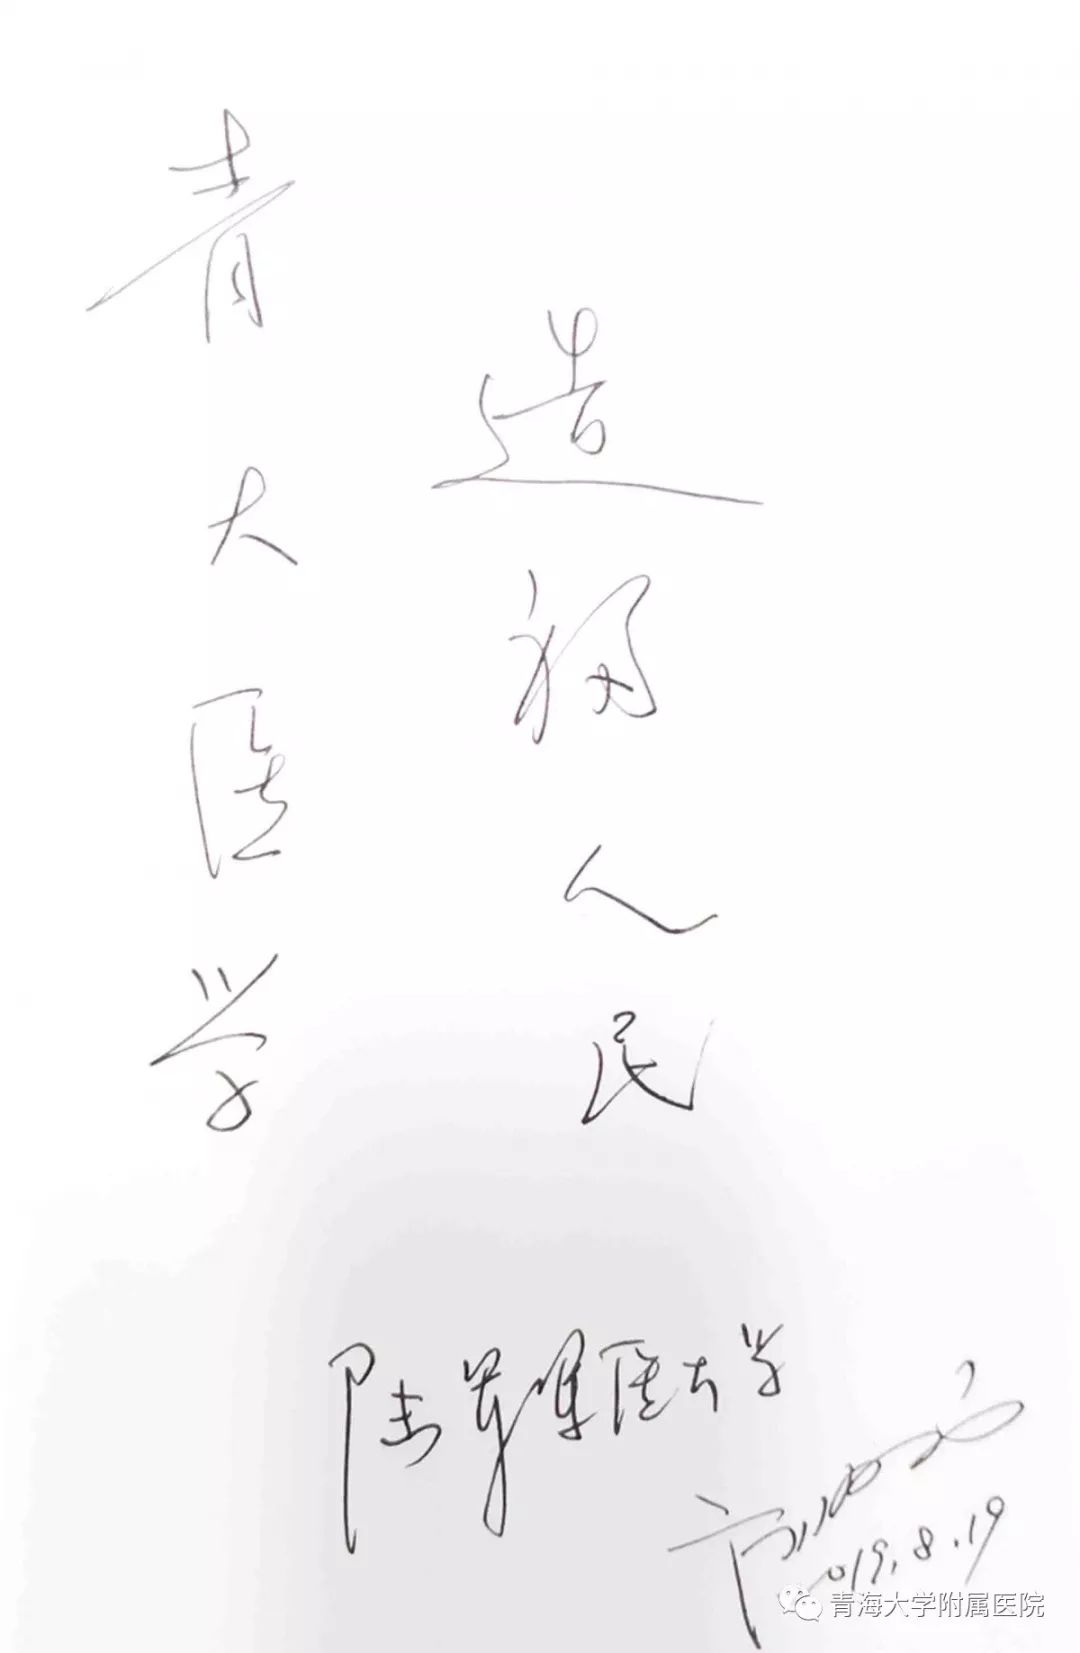 青大医学
造福人民
陆军军医大学
2019.8.19
青海大学附属医院